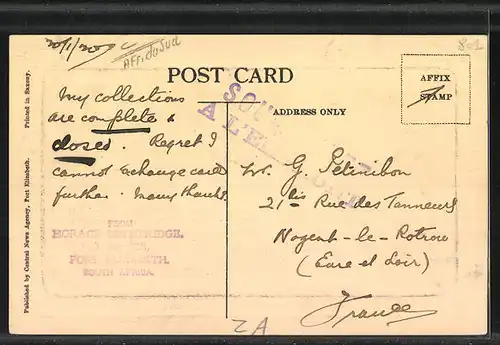 20/1/209
Afri du Sud
801
POST CARD
AFFIX
STAMP
My collections
are complete &
closed. Regret I
cannot exchange card
further. Many thanks.
ADDRESS ONLY
SOUS
A L'E
G. Petinibon
21 bis Rue des Tanneurs
Nogent-le-Rotrou
(Eure et Loir)
France
FROM
HORACE
PORT ELIZABETH,
SOUTH AFRICA.
Published by Central News Agency, Port Elizabeth.
Printed in Saxony.
ZA